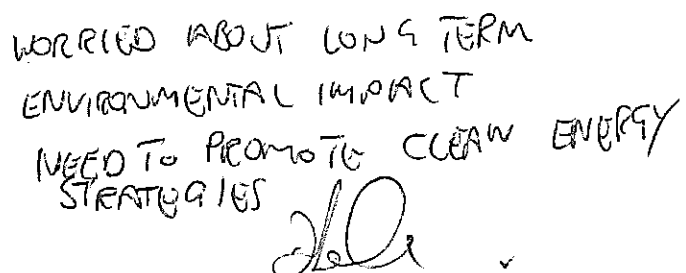 WORRIED ABOUT LONG TERM
ENVIRONMENTAL IMPACT
NEED TO PROMOTE CLEAN ENERGY
STRATEGIES